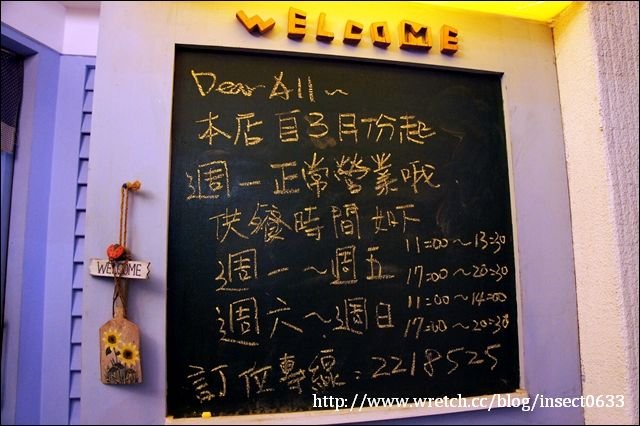 WELCOME
Dear All~
本店自3月份起
週一正常營業哦
供餐時間如下
週一~週五 11:00~13:30
17:00~20:30
週六~週日 11:00~14:00
17:00~20:30
訂位專線:2218525
WELCOME
http://www.wretch.cc/blog/insect0633